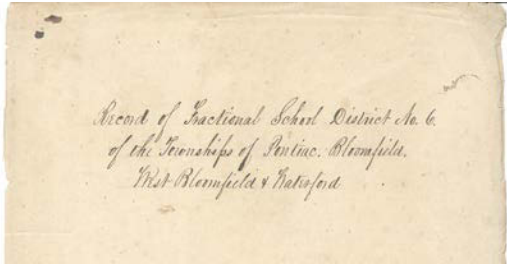 Record of Fractional School District No. 6.
of the Townships of Pontiac. Bloomfield.
West Bloomfield & Waterford